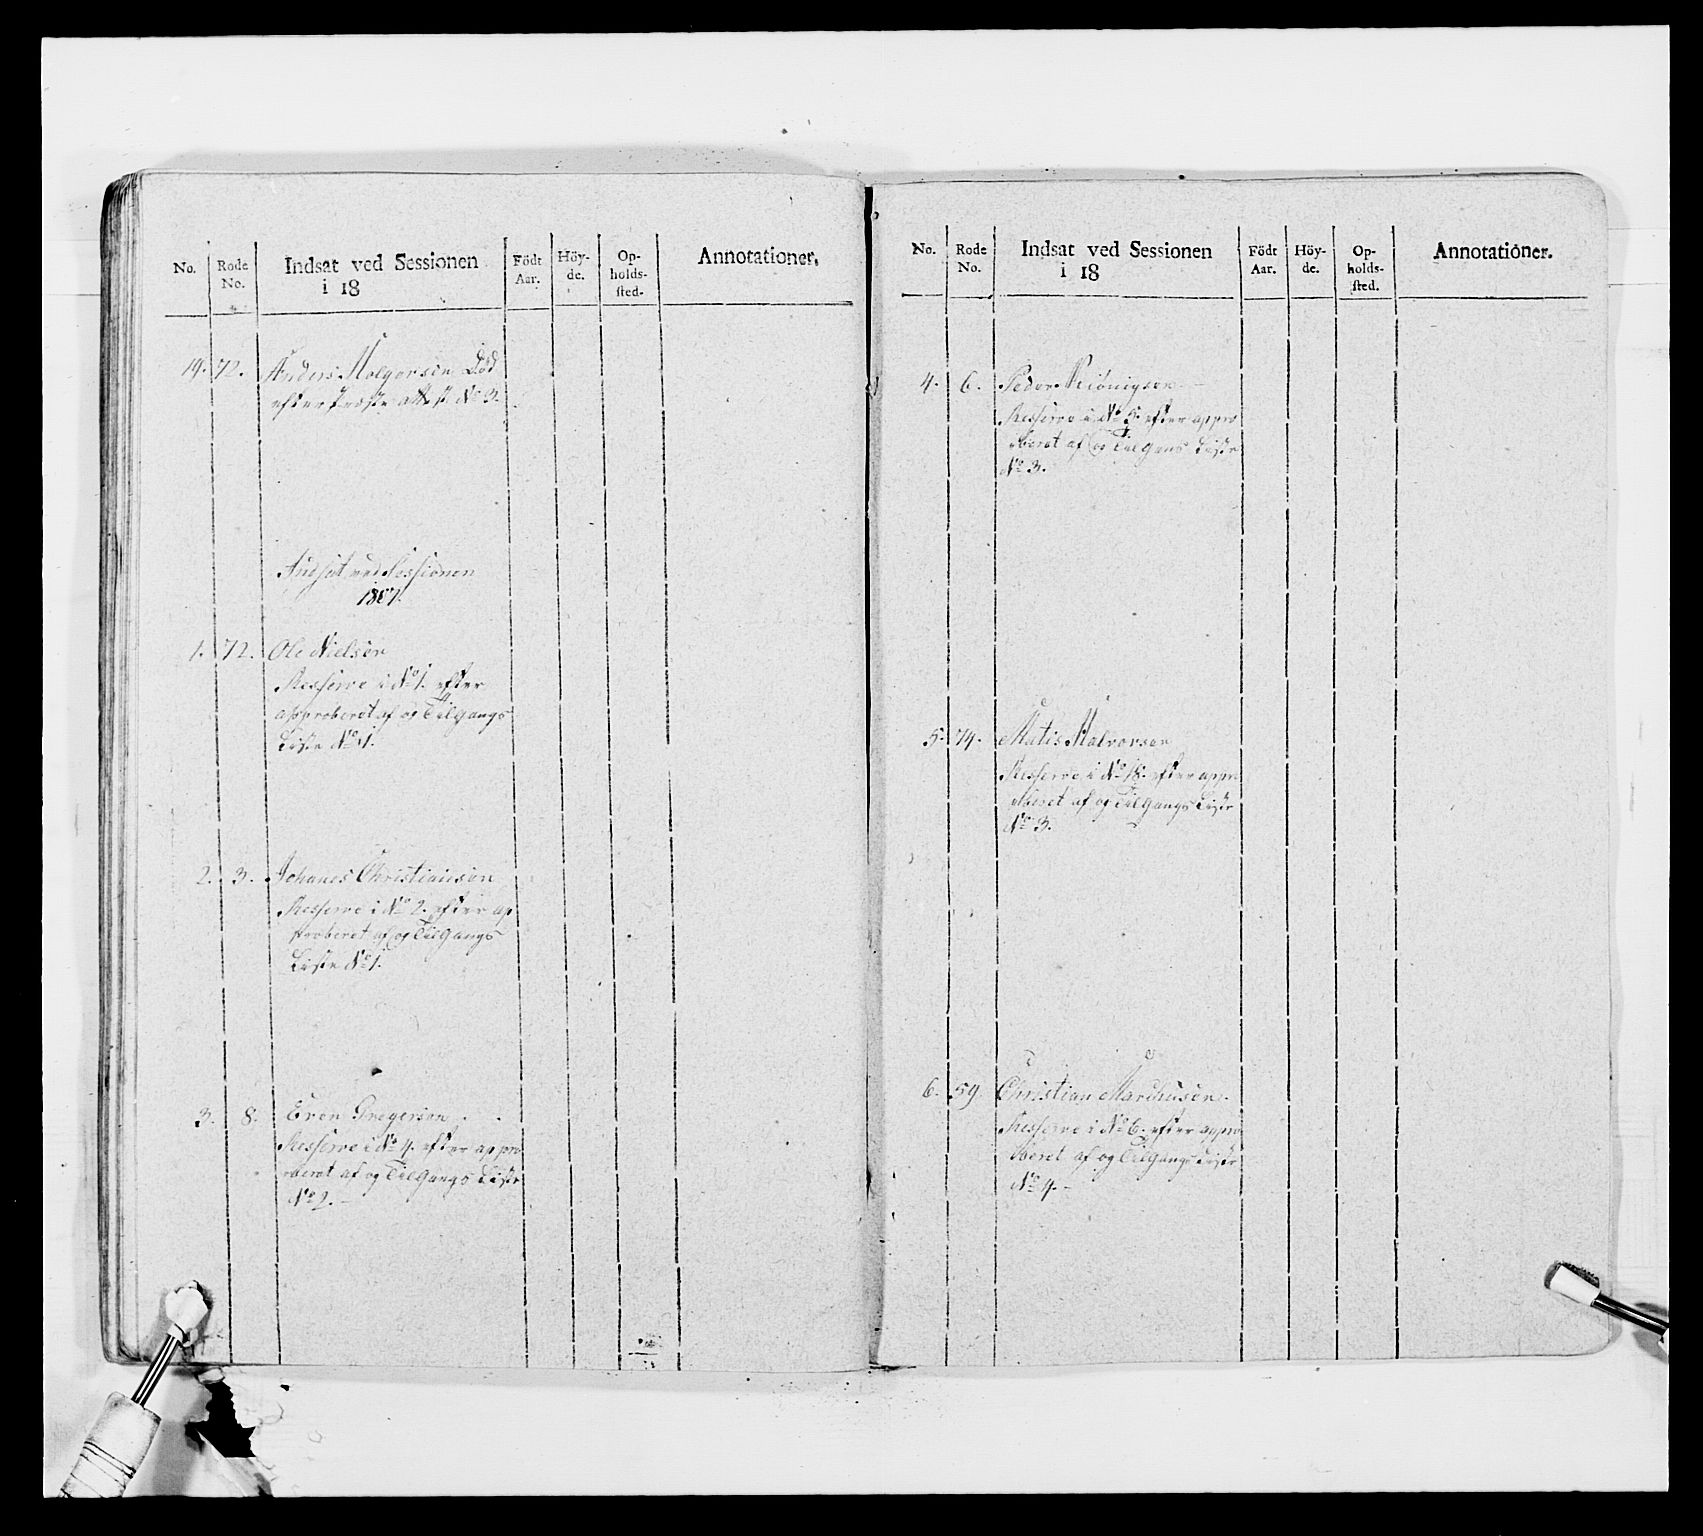 No.
Rode No.
Indsat ved Sessionen i 18
Födt Aar.
Höy-de.
Op-holds-sted.
Annotationer.
14. 72. Anders Holgersen Död
efter Præste attest No 3.
Indsat ved Sessionen
1807.
1. 72. Ole Nielsen
Resserve i No 1. efter
approberet af og Tilgangs
Liste No 1.
2. 3. Johanes Christiansen
Resserve i No 2. efter ap
proberet af og Tilgangs
Liste No 1.
3. 8. Even Gregersen.
Resserve i No 4. efter appro
beret af og Tilgangs Liste
No 2.
No.
Rode No.
Indsat ved Sessionen i 18
Födt Aar.
Höy-de.
Op-holds-sted.
Annotationer.
4. 6. Peder
Resserve i No 5. efter appro
beret af og Tilgans Liste
No 3.
5. 74. Matis Halvorsen
Resserve i No 18. efter appro
beret af og Tilgangs Liste
No 3.
6. 59. Christian Marchusen.
Resserve i No 6. efter appro
beret af og Tilgangs Liste
No 4.